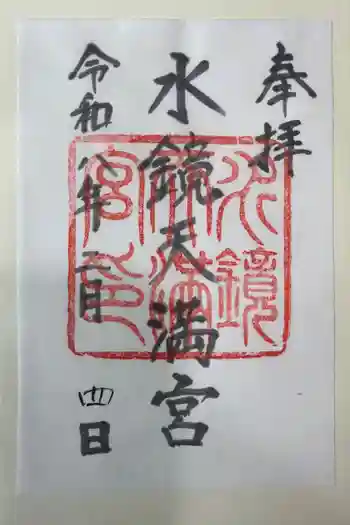 奉拝
水鏡天満宮
令和八年二月四日
水鏡天満宮印